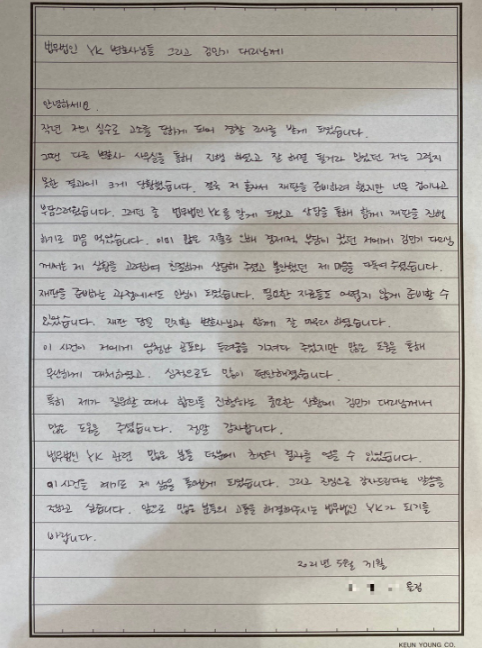 법무법인 YK 변호사님들 그리고 김민기 대리님께
안녕하세요.
작년 저의 실수로 고소를 당하게 되어 경찰 조사를 받게 되었습니다.
그때 다른 변호사 사무실을 통해 진행 하였고 잘 해결 될거라 믿었던 저는 그렇지
못한 결과에 크게 당황했습니다. 결국 저 혼자서 재판을 준비하려 했지만 너무 겁이나고
부담스러웠습니다. 그러던 중 법무법인 YK를 알게 되었고 상담을 통해 함께 재판을 진행
하기로 마음 먹었습니다. 이미 많은 지출로 인해 경제적 부담이 컸던 저에게 김민기 대리님
께서는 제 상황을 고려하여 친절하게 상담해 주셨고 불안했던 제 마음을 다독여 주셨습니다.
재판을 준비하는 과정에서도 안심이 되었습니다. 필요한 자료들도 어렵지 않게 준비할 수
있었습니다. 재판 당일 민지환 변호사님과 함께 잘 마무리 하였습니다.
이 사건이 저에게 엄청난 공포와 두려움을 가져다 주었지만 많은 도움을 통해
무사하게 대처하였고. 심적으로도 많이 편안해졌습니다.
특히 제가 질문할 때나 합의를 진행하는 중요한 상황에 김민기 대리님께서
많은 도움을 주셨습니다. 정말 감사합니다.
법무법인 YK 관련 많은 분들 덕분에 최선의 결과를 얻을 수 있었습니다.
이 사건을 계기로 제 삶을 돌아보게 되었습니다. 그리고 진심으로 감사드린다는 말씀을
전하고 싶습니다. 앞으로 많은 분들의 고통을 해결해주시는 법무법인 YK가 되기를
바랍니다.
2021년 5월 31일
올림
KEUN YOUNG CO.